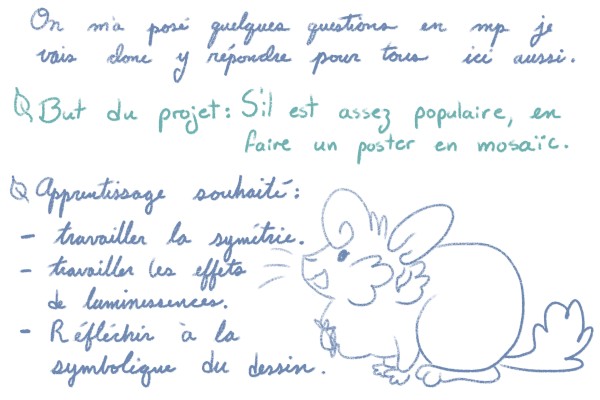 On m'a posé quelques questions en mp je
vais donc y répondre pour tous ici aussi.
But du projet: S'il est assez populaire, en
faire un poster en mosaïc.
Apprentissage souhaité:
- travailler la symétrie.
- travailler les effets
de luminessences.
- Réfléchir à la
symbolique du dessin.